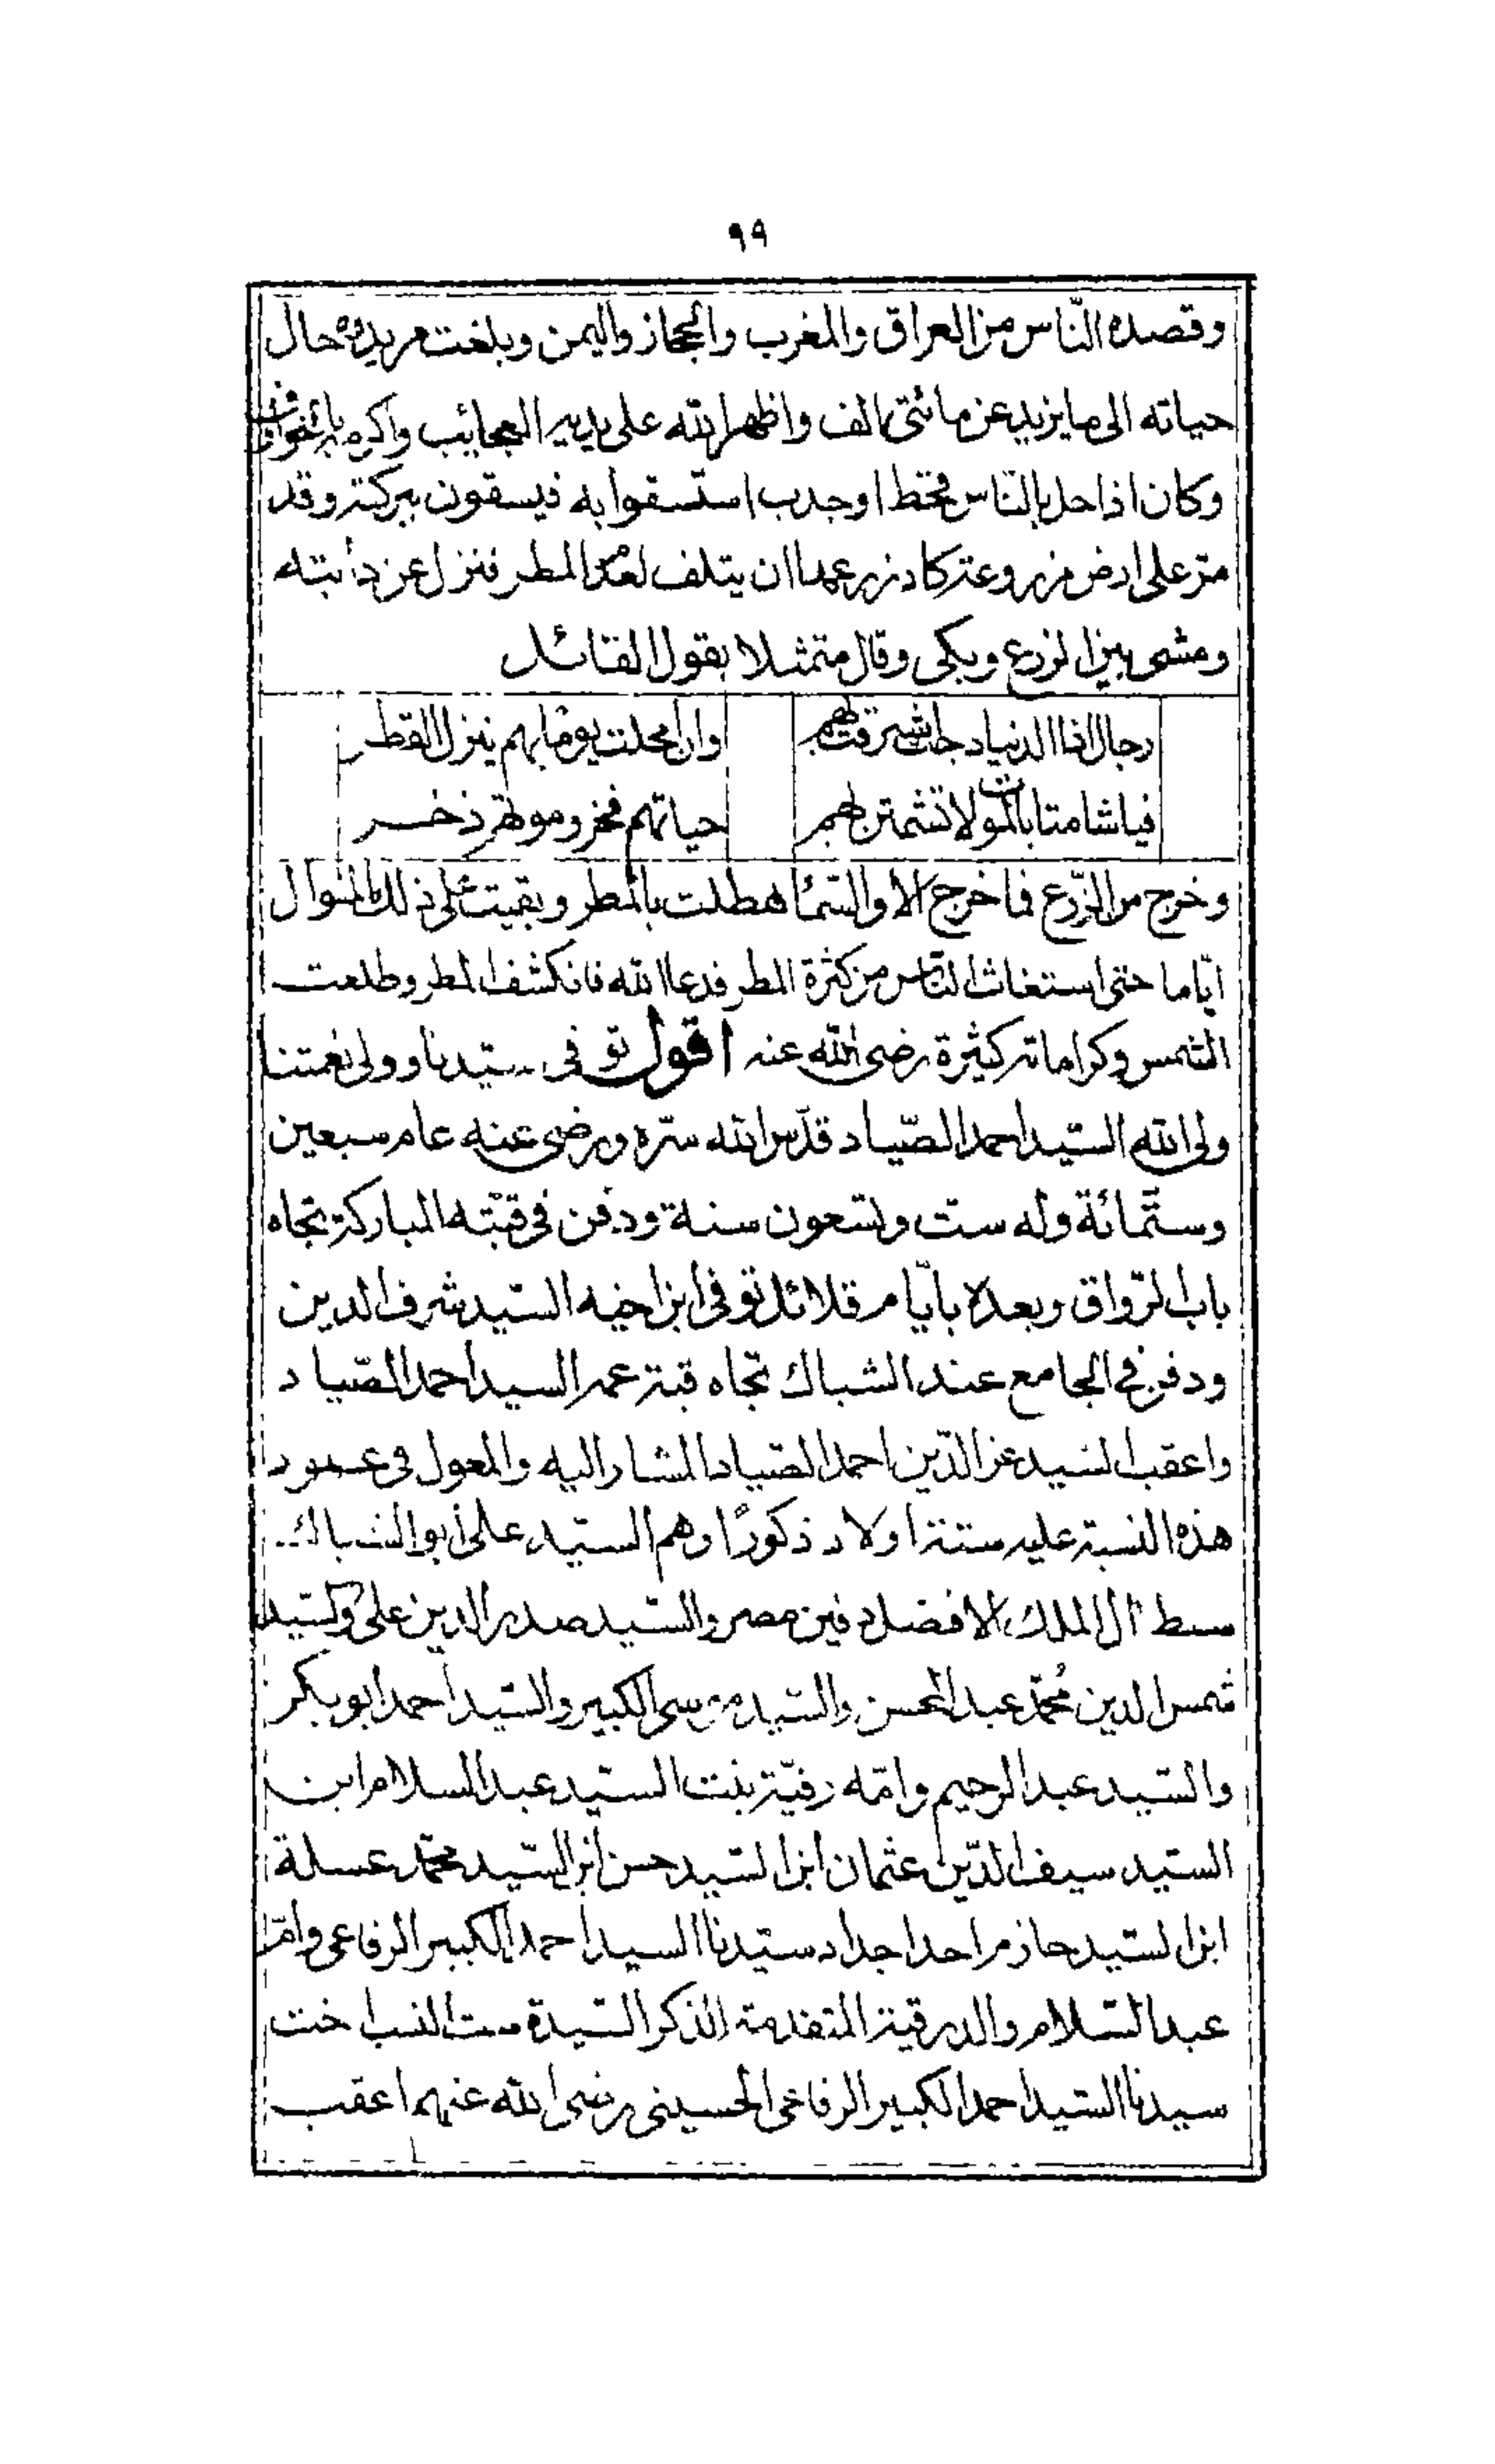 ٩٩
وقصده النّاس من العراق والمغرب والحجاز واليمن وبلغت مريدوه حال
حياته الى ما يزيد عن مائتى الف واظهر الله على يديه العجائب واكرمه بالخوارق
وكان اذا حل بالنّاس قحط او جدب استسقوا به فيسقون ببركته وقد
مرّ على ارض مزروعة كاد زرعها ان يتلف لعدم المطر فنزل عن دابته
ومشى بين الزرع وبكى وقال متمثلا بقول القائل
رجال اذا الدنيا دجت اشرقت بهم وان امحلت يوما بهم ينزل القطر
فيا شامتا بالموت لا تشمتن بهم حياتهم فخر وموتهم ذخر
وخرج من الزّرع فما خرج الا والسّماء هطلت بالمطر وبقيت على ذلك المنوال
ايّاما حتى استغاث النّاس من كثرة المطر فدعا الله فانكشف المطر وطلعت
الشمس وكراماته كثيرة رضى الله عنه اقول توفى سيّدنا وولى نعمتنا
ولى الله السيّد احمد الصّياد قدّس الله سرّه ورضى عنه عام سبعين
وستّمائة وله ست وتسعون سنة ودفن فى قبّته المباركة تجاه
باب الرّواق وبعده بايّام قلائل توفى ابن اخيه السيّد شرف الدين
ودفن فى الجامع عند الشباك تجاه قبة عمه السيد احمد الصّياد
واعقب السّيد عز الدّين احمد الصّياد المشار اليه والمعول فى عمود
هذه النسبة عليه ستة اولاد ذكورًا وهم السيّد على ابو الشباك
سبط آل الملك الافضل دفين مصر والسّيد صدر الدين على والسّيد
شمس الدين مُحمّد عبد المحسن والسّيد موسى الكبير والسّيد احمد ابو بكر
والسّيد عبد الرحيم وامّه رقيّة بنت السيّد عبد السلام ابن
السيّد سيف الدّين عثمان ابن السّيد حسن ابن السّيد محمّد عسلة
ابن السّيد حازم احد اجداد سيّدنا السيد احمد الكبير الرفاعى وامّ
عبد السّلام والد رقية المتقدمة الذكر السّيدة ست النسب اخت
سيدنا السّيد احمد الكبير الرفاعى الحسينى رضى الله عنهم اعقب